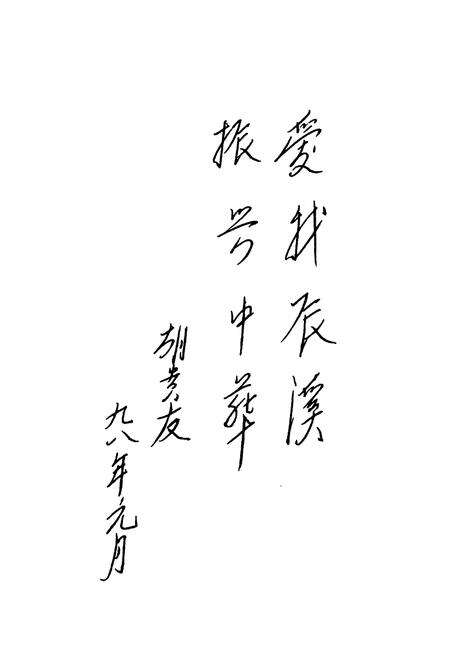 愛我辰溪
振兴中華
胡贵友
九八年元月